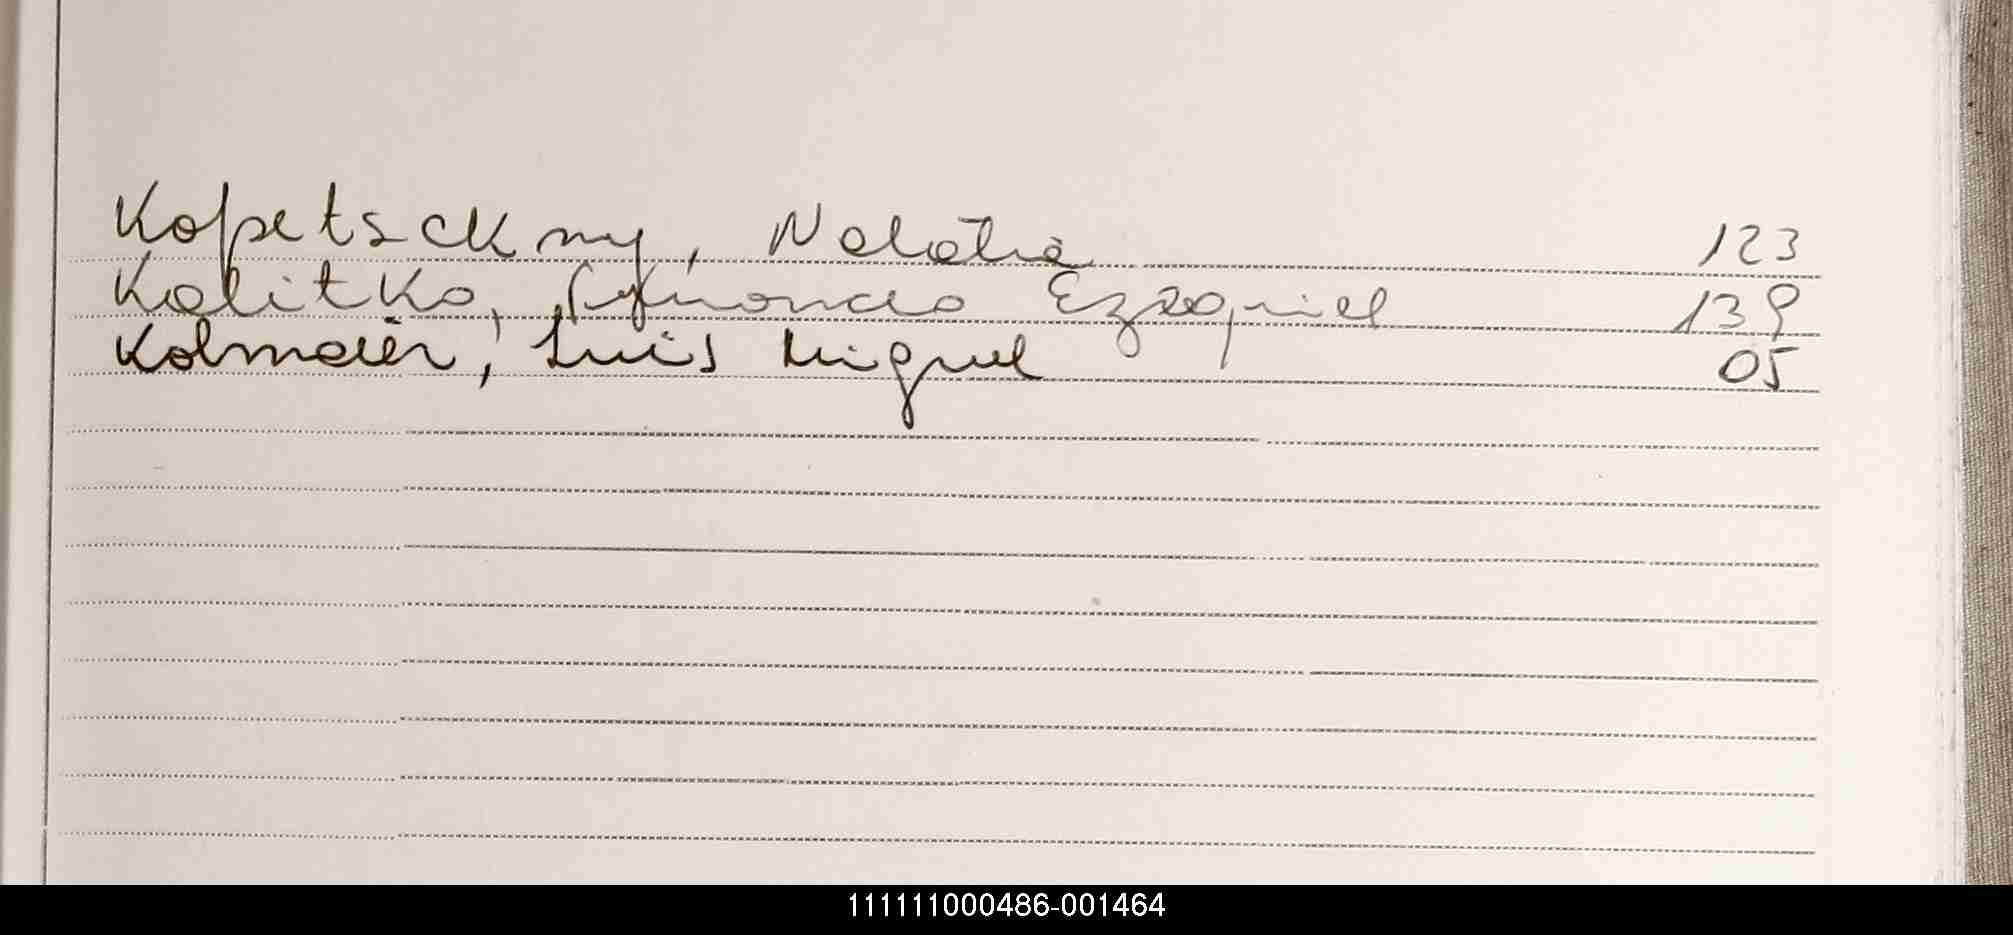 Kopetsckny, Natalia 123
Kalitko, Facundo Ezequiel 139
Kolmaier, Luis Miguel 05
111111000486-001464